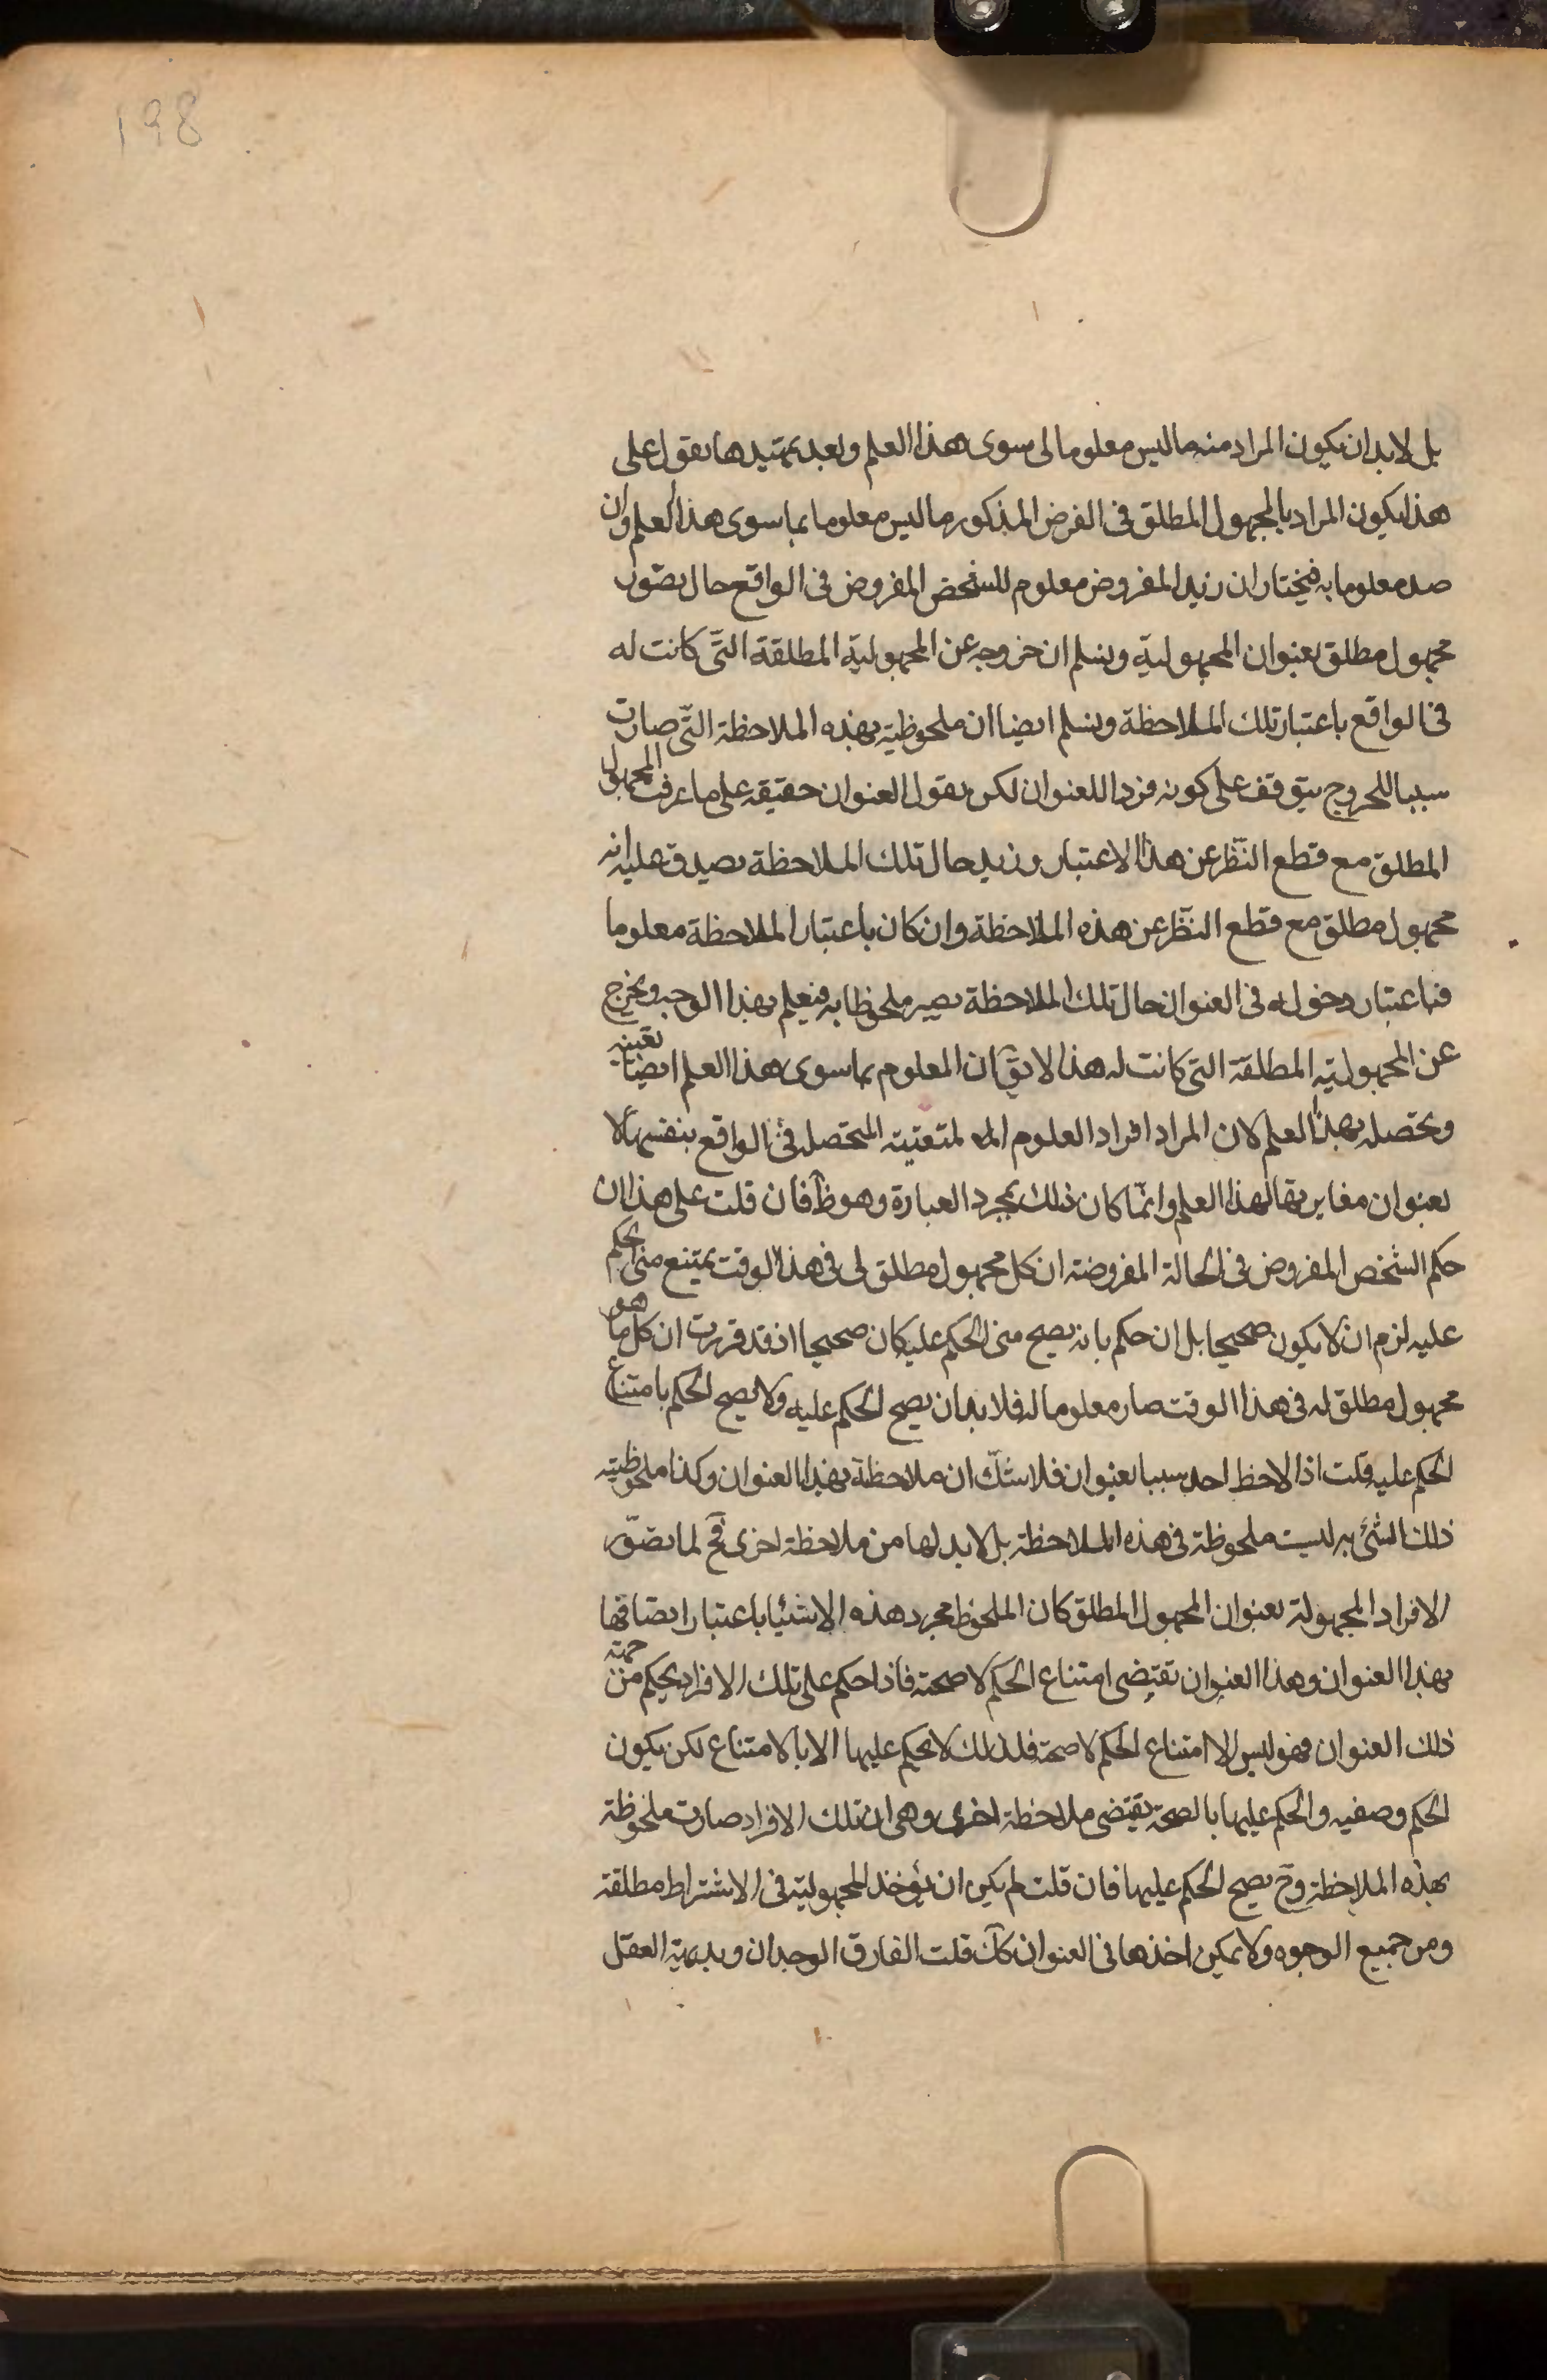 198
بل لا بد ان يكون المراد منه ما ليس معلوما لى سوى هذا العلم وبعد تمهيدها نقول على
هذا يكون المراد بالمجهول المطلق فى الفرض المذكور ما ليس معلوما بما سوى هذا العلم وان
معلوما به فيختار ان زيد المفروض معلوم للشخص المفروض فى الواقع حال تصور
مجهول مطلق بعنوان المجهولية ونسلم ان خروجه عن المجهولية المطلقة التى كانت له
فى الواقع باعتبار تلك الملاحظة ونسلم ايضا ان ملحوظيته بهذه الملاحظة التى صارت
سببا للخروج يتوقف على كونه فردا للعنوان لكن نقول العنوان حقيقة على ما عرفت المجهول
المطلق مع قطع النظر عن هذا الاعتبار وزيد حال تلك الملاحظة يصدق عليه انه
مجهول مطلق مع قطع النظر عن هذه الملاحظة وان كان باعتبار الملاحظة معلوما
فباعتبار دخوله فى العنوان حال تلك الملاحظة يصير ملحوظا به فيعلم بهذا الوجه ويخرج
عن المجهولية المطلقة التى كانت له هذا لا يق ان المعلوم بما سوى هذا العلم ايضا تعينه
وتحصله بهذا العلم لان المراد افراد العلوم المتعينة المتحصلة فى الواقع بنفسها لا
بعنوان مغايرتها لهذا العلم وانما كان ذلك بمجرد العبارة وهو ظ فان قلت على هذا ان
حكم الشخص المفروض فى الحالة المفروضة ان كل مجهول مطلق لى فى هذا الوقت يمتنع منى الحكم
عليه لزم ان لا يكون صحيحا بل ان حكم بانه يصح منى الحكم عليه كان صحيحا اذ قد قررت ان كل ما هو
مجهول مطلق له فى هذا الوقت صار معلوما له فلا بد ان يصح الحكم عليه ولا يصح الحكم بامتناع
الحكم عليه قلت اذا لاحظ احد سببا بعنوان فلا شك ان ملاحظة بهذا العنوان وكذا ملحوظية
ذلك الشئ به ليست ملحوظة فى هذه الملاحظة بل لا بد لها من ملاحظة اخرى فح لما تصور
الافراد المجهولة بعنوان المجهول المطلق كان الملحوظ مجرد هذه الاشيا باعتبار اتصافها
بهذا العنوان وهذا العنوان تقتضى امتناع الحكم لا صحته فاذا حكم على تلك الافراد بحكم من جهة
ذلك العنوان فهو ليس الا امتناع الحكم لا صحته فلذلك لا يحكم عليها الا بالامتناع لكن يكون
الحكم وصفيه والحكم عليها بالصحة يقتضى ملاحظة اخرى وهى ان تلك الافراد صارت ملحوظة
بهذه الملاحظة وح يصح الحكم عليها فان قلت لم يكن ان يؤخذ المجهولية فى الاشتراط مطلقة
ومن جميع الوجوه ولا يمكن اخذها فى العنوان كك قلت الفارق الوجدان وبديهة العقل